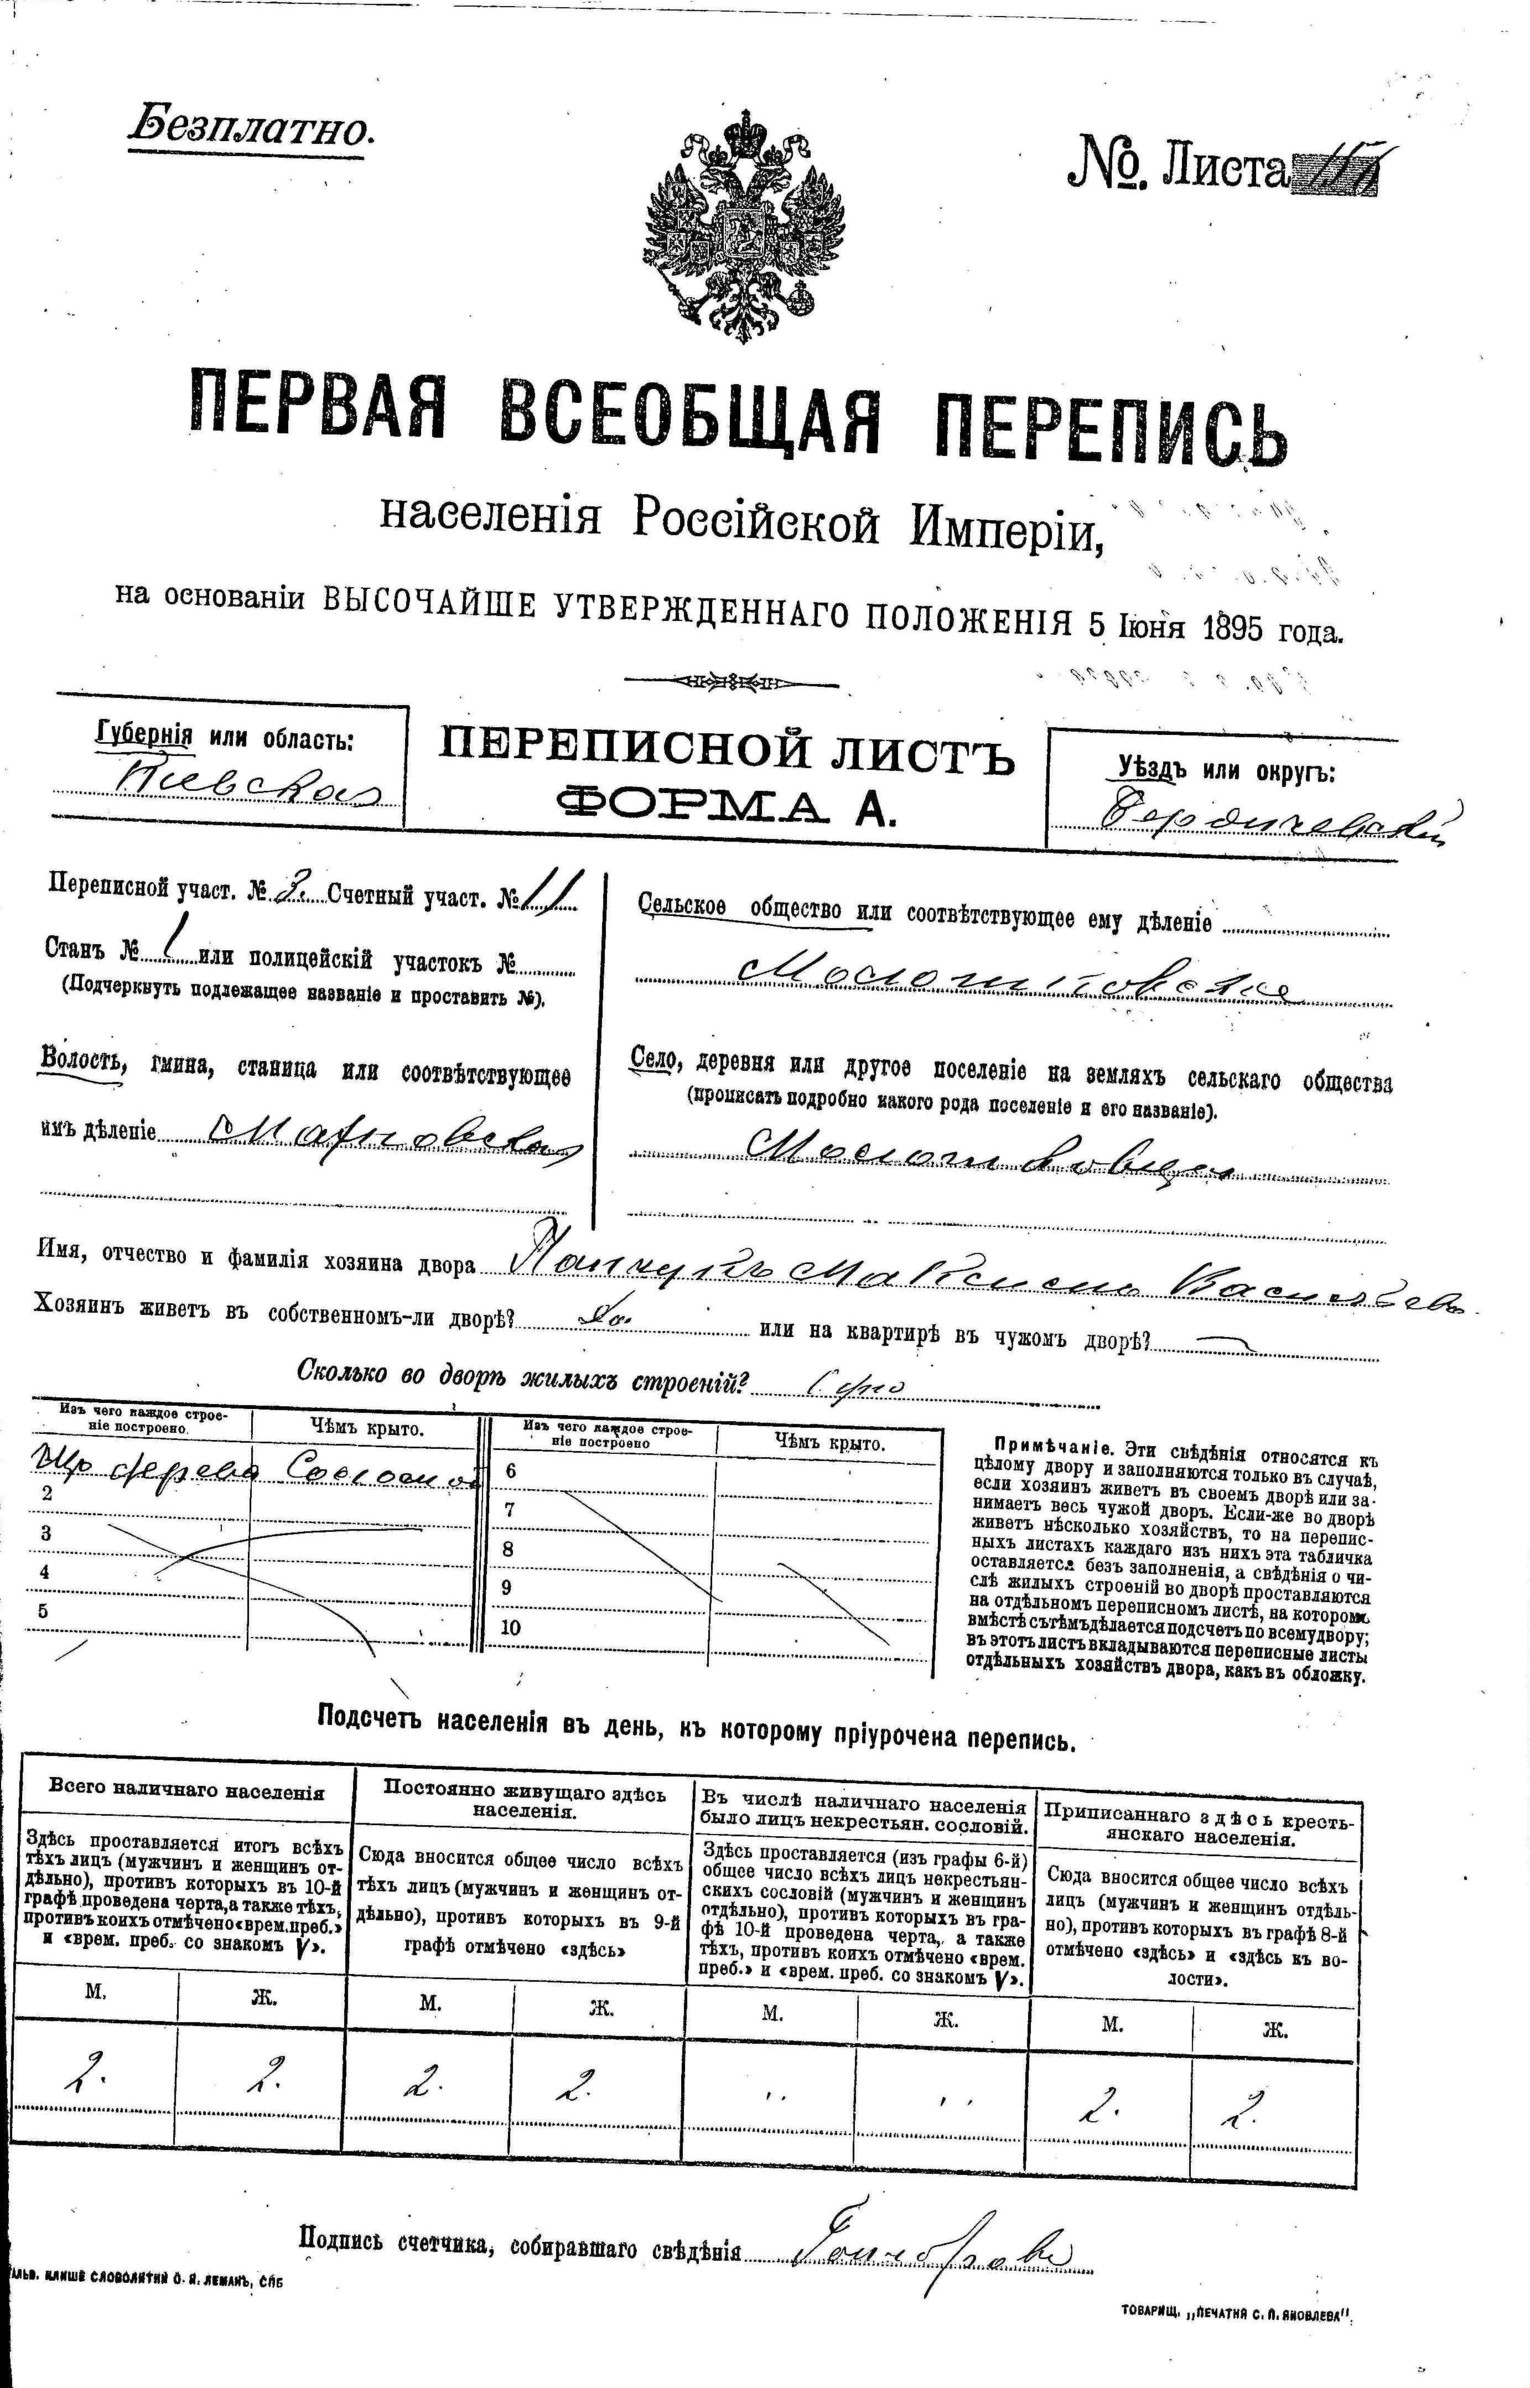 Безплатно.
№. Листа
ПЕРВАЯ ВСЕОБЩАЯ ПЕРЕПИСЬ
населенія Россійской Имперіи,
на основаніи ВЫСОЧАЙШЕ УТВЕРЖДЕННАГО ПОЛОЖЕНІЯ 5 Іюня 1895 года.
Губернія или область:
Кіевская
ПЕРЕПИСНОЙ ЛИСТЪ
ФОРМА А.
Уѣздъ или округъ:
Бердичевскій
Переписной участ. № 2. Счетный участ. № 11
Станъ № 1 или полицейскій участокъ №
(Подчеркнуть подлежащее названіе и проставить №).
Волость, гмина, станица или соотвѣтствующее
имъ дѣленіе Махновская
Сельское общество или соотвѣтствующее ему дѣленіе
Молотковское
Село, деревня или другое поселеніе на земляхъ сельскаго общества
(прописать подробно какого рода поселеніе и его названіе).
Имя, отчество и фамилія хозяина двора Панчукъ Максимъ Васильевъ
Хозяинъ живетъ въ собственномъ-ли дворѣ? Да. или на квартирѣ въ чужомъ дворѣ? —
Сколько во дворѣ жилыхъ строеній? Одно
Изъ чего каждое строе-
ніе построено.
Чѣмъ крыто.
Изъ чего каждое строе-
ніе построено
Чѣмъ крыто.
Изъ дерева Соломой
2
3
4
5
6
7
8
9
10
Примѣчаніе. Эти свѣдѣнія относятся къ
цѣлому двору и заполняются только въ случаѣ,
если хозяинъ живетъ въ своемъ дворѣ или за-
нимаетъ весь чужой дворъ. Если-же во дворѣ
живетъ нѣсколько хозяйствъ, то на перепис-
ныхъ листахъ каждаго изъ нихъ эта табличка
оставляется безъ заполненія, а свѣдѣнія о чи-
слѣ жилыхъ строеній во дворѣ проставляются
на отдѣльномъ переписномъ листѣ, на которомъ
вмѣстѣ съ тѣмъ дѣлается подсчетъ по всему двору;
въ этотъ листъ вкладываются переписные листы
отдѣльныхъ хозяйствъ двора, какъ въ обложку.
Подсчетъ населенія въ день, къ которому пріурочена перепись.
Всего наличнаго населенія
Здѣсь проставляется итогъ всѣхъ
тѣхъ лицъ (мужчинъ и женщинъ от-
дѣльно), противъ которыхъ въ 10-й
графѣ проведена черта, а также тѣхъ,
противъ коихъ отмѣчено «врем. преб.»
и «врем. преб. со знакомъ V».
Постоянно живущаго здѣсь
населенія.
Сюда вносится общее число всѣхъ
тѣхъ лицъ (мужчинъ и женщинъ от-
дѣльно), противъ которыхъ въ 9-й
графѣ отмѣчено «здѣсь»
Въ числѣ наличнаго населенія
было лицъ некрестьян. сословій.
Здѣсь проставляется (изъ графы 6-й)
общее число всѣхъ лицъ некрестьян-
скихъ сословій (мужчинъ и женщинъ
отдѣльно), противъ которыхъ въ гра-
фѣ 10-й проведена черта, а также
тѣхъ, противъ коихъ отмѣчено «врем.
преб.» и «врем. преб. со знакомъ V».
Приписаннаго здѣсь кресть-
янскаго населенія.
Сюда вносится общее число всѣхъ
лицъ (мужчинъ и женщинъ отдѣль-
но), противъ которыхъ въ графѣ 8-й
отмѣчено «здѣсь» и «здѣсь къ во-
лости».
М. Ж. М. Ж. М. Ж. М. Ж.
2. 2. 2. 2. ,, ,, 2. 2.
Подпись счетчика, собиравшаго свѣдѣнія
АЛЬВ. КЛИШЕ СЛОВОЛИТНИ О. И. ЛЕМАНЪ, СПБ
ТОВАРИЩ. „ПЕЧАТНЯ С. П. ЯКОВЛЕВА".